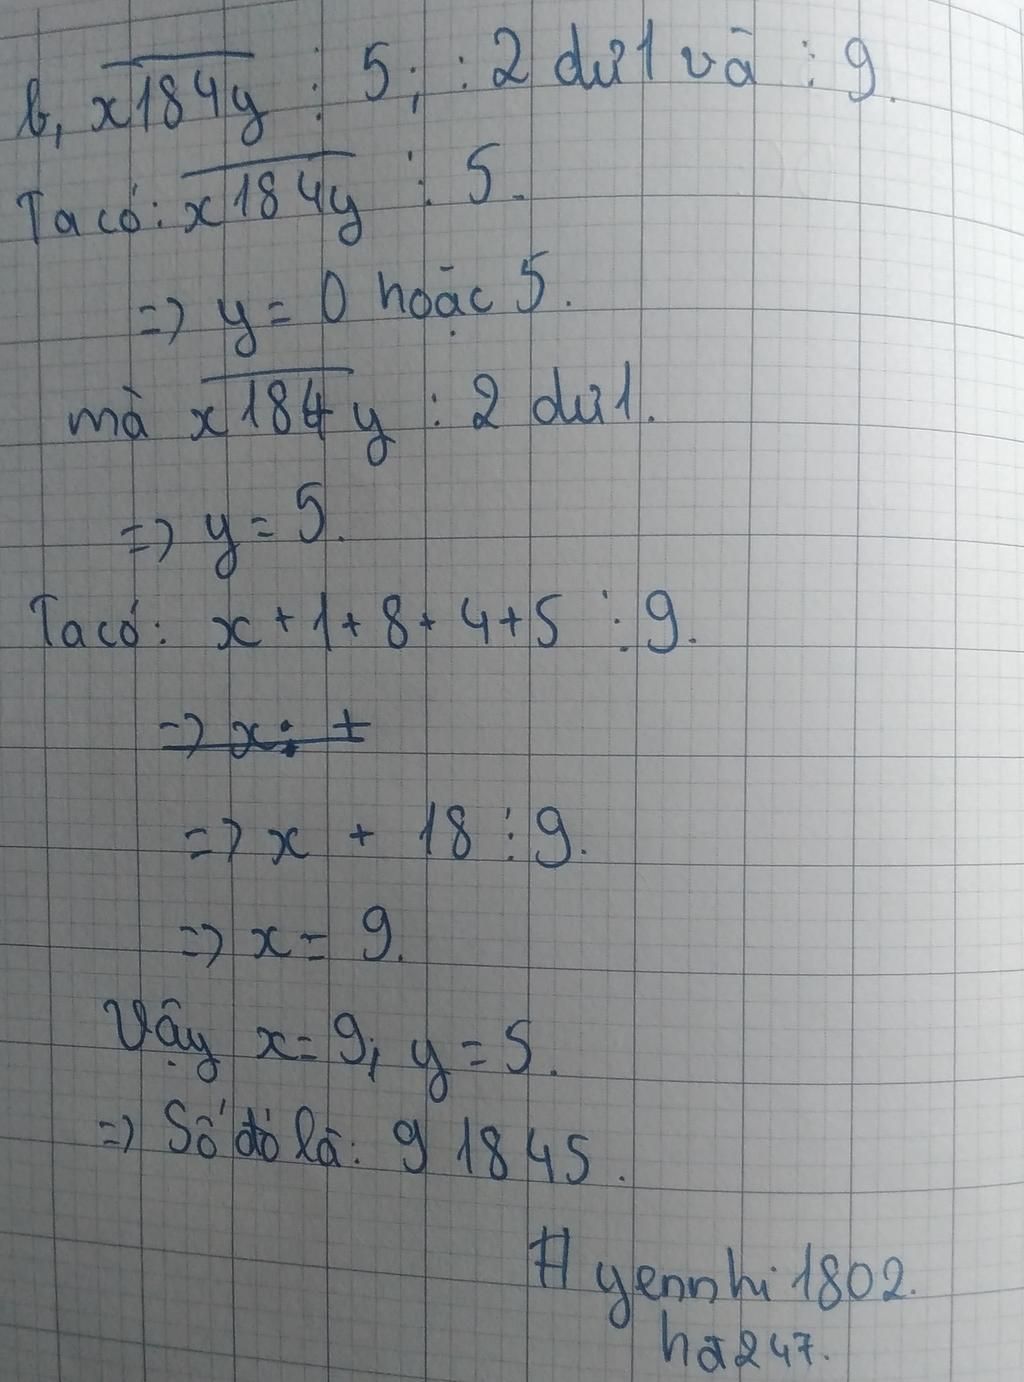 b, x184y ⋮ 5; : 2 dư 1 và ⋮ 9.
Ta có: x184y ⋮ 5.
=> y = 0 hoặc 5.
mà x184y : 2 dư 1.
=> y = 5.
Ta có: x + 1 + 8 + 4 + 5 ⋮ 9.
=> x + 18 ⋮ 9.
=> x = 9.
Vậy x = 9; y = 5.
=> Số đó là: 91845.
# yennhi1802.
ha247.